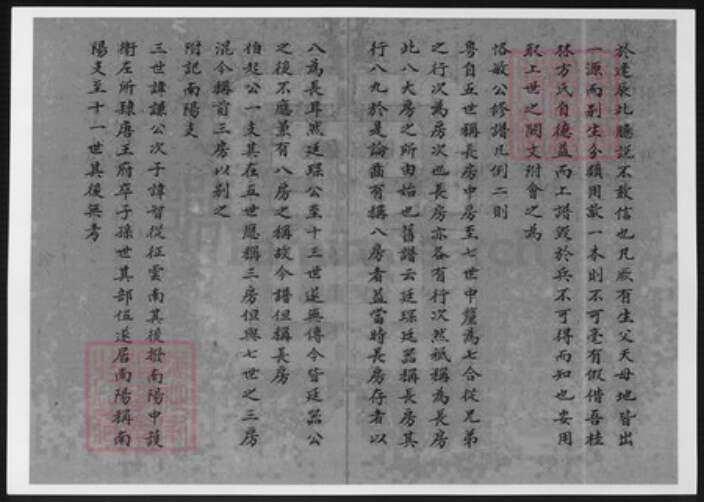 於達辰北聽說不敢信也凡厥有生父天母地皆出
一源而別生分類用敬一本則不可毫有假借吾桂
林方氏自德益而上譜毀於兵不可得而知也安用
取上世之闕文附會之為
恪敏公修譜凡例二則
粵自五世稱長房中房至七世中釐為七合從兄弟
之行次為房次也長房亦各有行次然祇稱為長房
此八大房之所由始也舊譜云廷璨廷器稱長房其
行八九於是論齒有稱八房者益當時長房存者以
八為長耳然廷璨公至十三世遂無傳今皆廷器公
之後不應兼有八房之稱故今譜但稱長房
伯起公一支其在五世應稱三房但與七世之三房
混今稱前三房以別之
附記南陽支
三世諱謙公次子諱智從征雲南其後撥南陽中護
衛左所隸唐王府卒子孫世其部伍遂居南陽稱南
陽支至十一世其後無考